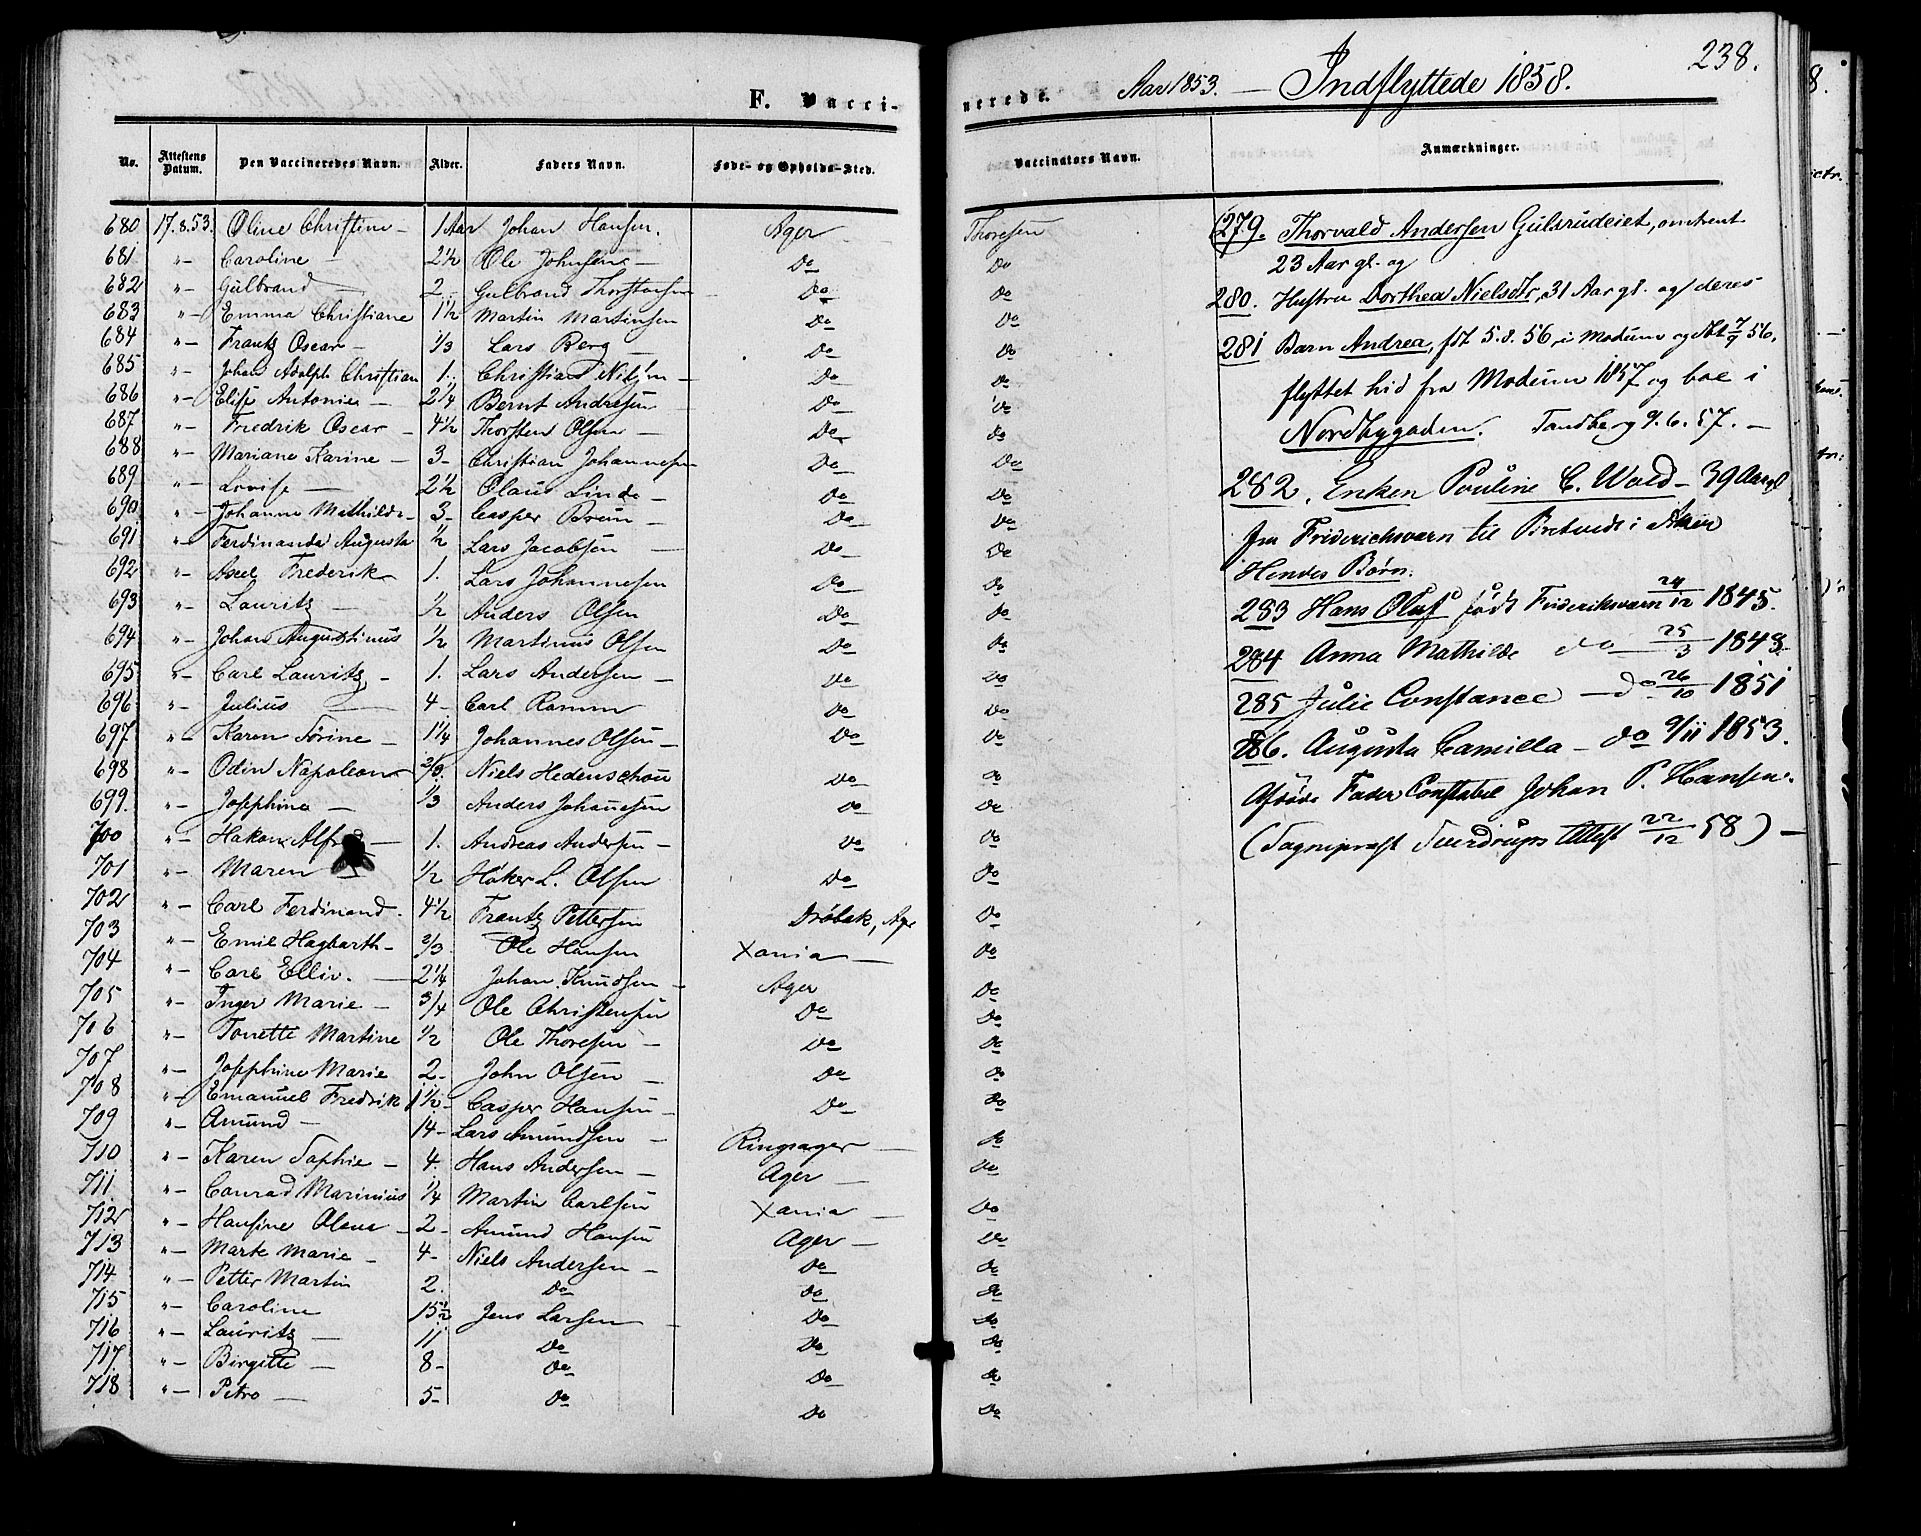 F. Vaccinerede. Aar 1853. — Indflyttede 1858. 238.
No. Attestens Datum. Den Vaccineredes Navn. Alder. Faders Navn. Føde- og Opholds-Sted. Vaccinators Navn. Anmærkninger.
680 17.8.53. Oline Christine — 1 Aar Johan Hansen. Ager Thoresen
681 "— Caroline — 2½ Ole Johnsen — Do Do
682 "— Gulbrand — 2 — Gulbrand Thorstensen — Do Do
683 "— Emma Christiane 1½ Martin Martinsen Do Do
684 "— Frantz Oscar — 1/3 Lars Berg — Do Do
685 "— Johan Adolph Christian 1. Christian — Do Do
686 "— Elise Antonie — 2¼ Bernt Andresen Do Do
687 "— Fredrik Oscar — 4½ Thorsten Olsen — Do Do
688 "— Mariane Karine — 3 — Christian Johannesen Do Do
689 "— Lovise — 2½ Olaus Linde — Do Do
690 "— Johanne Mathilde — 3 — Casper Bruun — Do Do
691 "— Ferdinanda Augusta ½ Lars Jacobsen — Do Do
692 "— Axel Frederik 1. Lars Johannesen Do Do
693 "— Lauritz — ½ Anders Olsen Do Do
694 "— Johan Augustinus ½ Martinius Olsen Do Do
695 "— Carl Lauritz — 1. Lars Andersen — Do Do
696 "— Julius — 4 — Carl Ramm Do Do
697 "— Karen Sørine — 1¼ Johannes Olsen — Do Do
698 "— Odin Napoleon 2/3. Niels Hedenschou Do Do
699. "— Josephine — 1/3 Anders Johannesen Do Do
700 "— Hakon Alf — 1. Andreas Andersen — Do Do
701 "— Maren ½ Høker L. Olsen Do Do
702 "— Carl Ferdinand. 4½ Frantz Pettersen Drøbak, Ager Do
703 "— Emil Hagbarth — 2/3 Ole Hansen Xania — Do
704 "— Carl Elliv. — 2¼ Johan Knudsen — Ager Do
705 "— Inger Marie — 3/4 Ole Christensen Do Do
706 "— Tonette Martine ½ Ole Thoresen — Do Do
707 "— Josephine Marie 2 — John Olsen — Do Do
708 "— Emanuel Fredrik 1½ — Casper Hansen — Do Do
709 "— Amund — 14 — Lars Amundsen — Ringsager — Do
710 "— Karen Sophie — 4. Hans Andersen — Ager — Do
711 "— Conrad Marinius ¼ Martin Carlsen Xania — Do
712 "— Hansine Olena — 2 — Amund Hansen Ager — Do
713 "— Marte Marie — 4 — Niels Andersen — Do Do
714 "— Petter Martin 2. Do Do Do
715 "— Caroline 15½ Jens Larsen — Do Do
716 "— Lauritz — 11 Do Do Do
717. "— Birgitte — 8 — Do Do Do
718 "— Petro — 5 — Do Do Do
279. Thorvald Andersen Gulsrudeiet, omtrent
23 Aar gl. og
280. Hustru Dorthea Nielsdtr, 31 Aar gl. og deres
281 Barn Andrea, fdt 5.3.56, i Modum og dbt 7/9 56,
flyttet hid fra Modum 1857 og boe i
Nordbygaden. Tandberg 9.6.57. —
282. Enken Pouline C. Wold — 39 Aar gl
fra Friderichsværn til Bretvedt i Aker
Hendes Børn.
283 Hans Oluf født Frideriksværn 24/12 1845.
284 Anna Mathilde do 25/3 1843.
285 Julie Constance — do 26/10 1851
286. Augusta Camilla — do 9/11 1853.
Afdøde Fader Constabel Johan P. Hansen.
(Sognepræst Sverdrups Attest 22/12 58) —